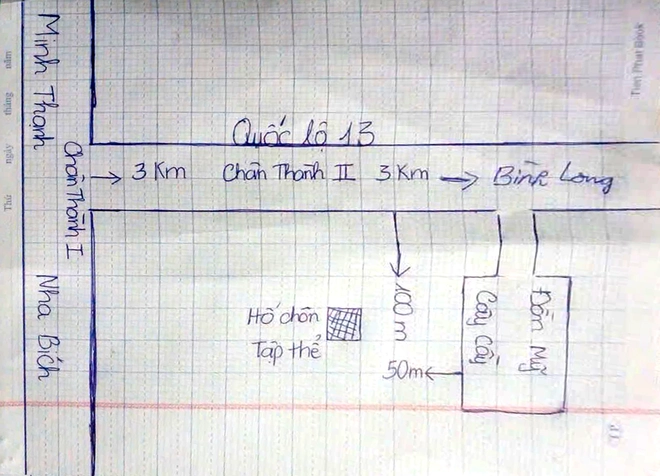 Minh Thạnh
Chân Thành I
Nha Bích
Quốc lộ 13
3 Km Chân Thành II 3 Km Bình Long
Hố chôn
Tập thể
100m
50m
Cây Cầy
Đồn Mỹ
Thứ ngày tháng năm
Tien Phat Book